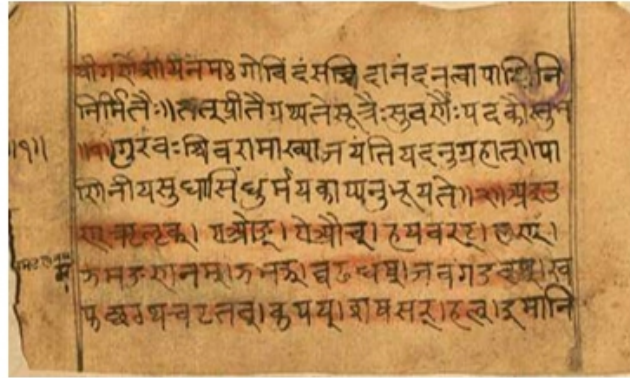 श्रीगणेशायनमः गोविंदंसच्चिदानंदंनत्वापाणिनि
निर्मितैः॥तत्प्रीतैग्रथ्यतेसूत्रैःसुवर्णैःपदकौस्तुभ
॥१॥गुरवःश्चिवरामाख्याजयंतियदनुग्रहात्॥पा
णिनीयसुधासिंधुर्मयकाप्यनुभूयते॥
एओङ्। ऐऔच्। हयवरट्। लण्।
ञमङणनम्। जबगडदश्। ख
फछठथचटतव्। कपय्। शषसर्। हल्। इमानि
॥१॥